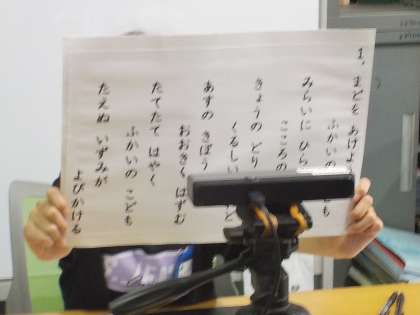 1. まどを あけよ
ふかいの
みらいに ひら
こころの
きょうの どり
くるしい
あすの きぼう
おおきく はずむ
たてたて はやく
ふかいの こども
たえぬ いずみが
よびかける